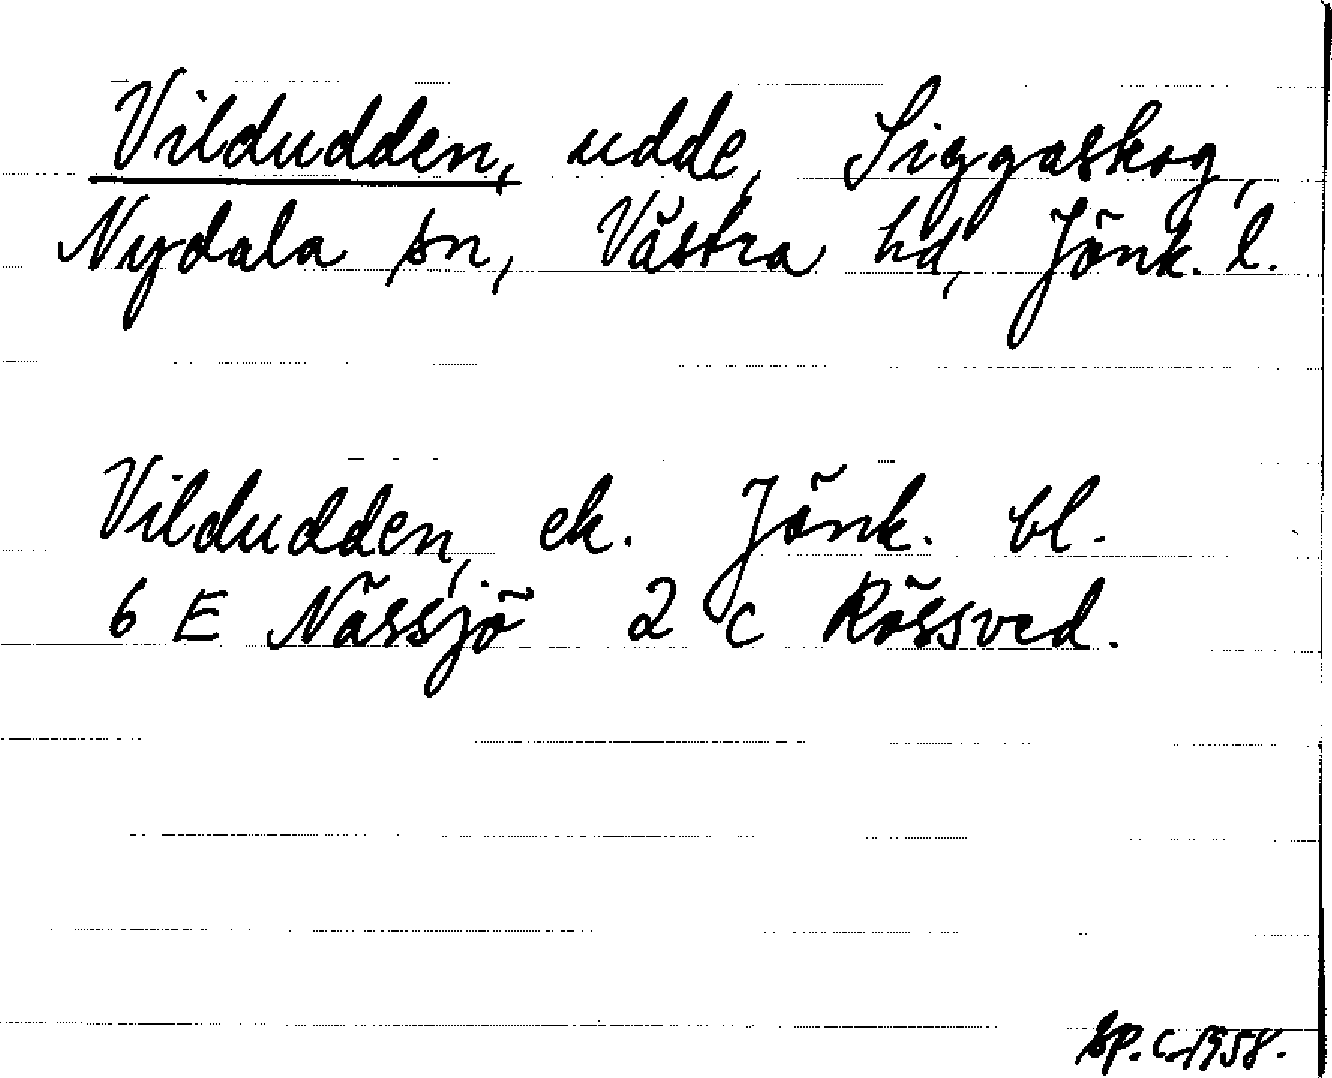 Vildudden, udde, Siggaskog,
Nydala sn, Västra hd, Jönk. l.
Vildudden, ek. Jönk. bl.
6 E Nässjö 2 c Rössved.
Sp. C. 1958.